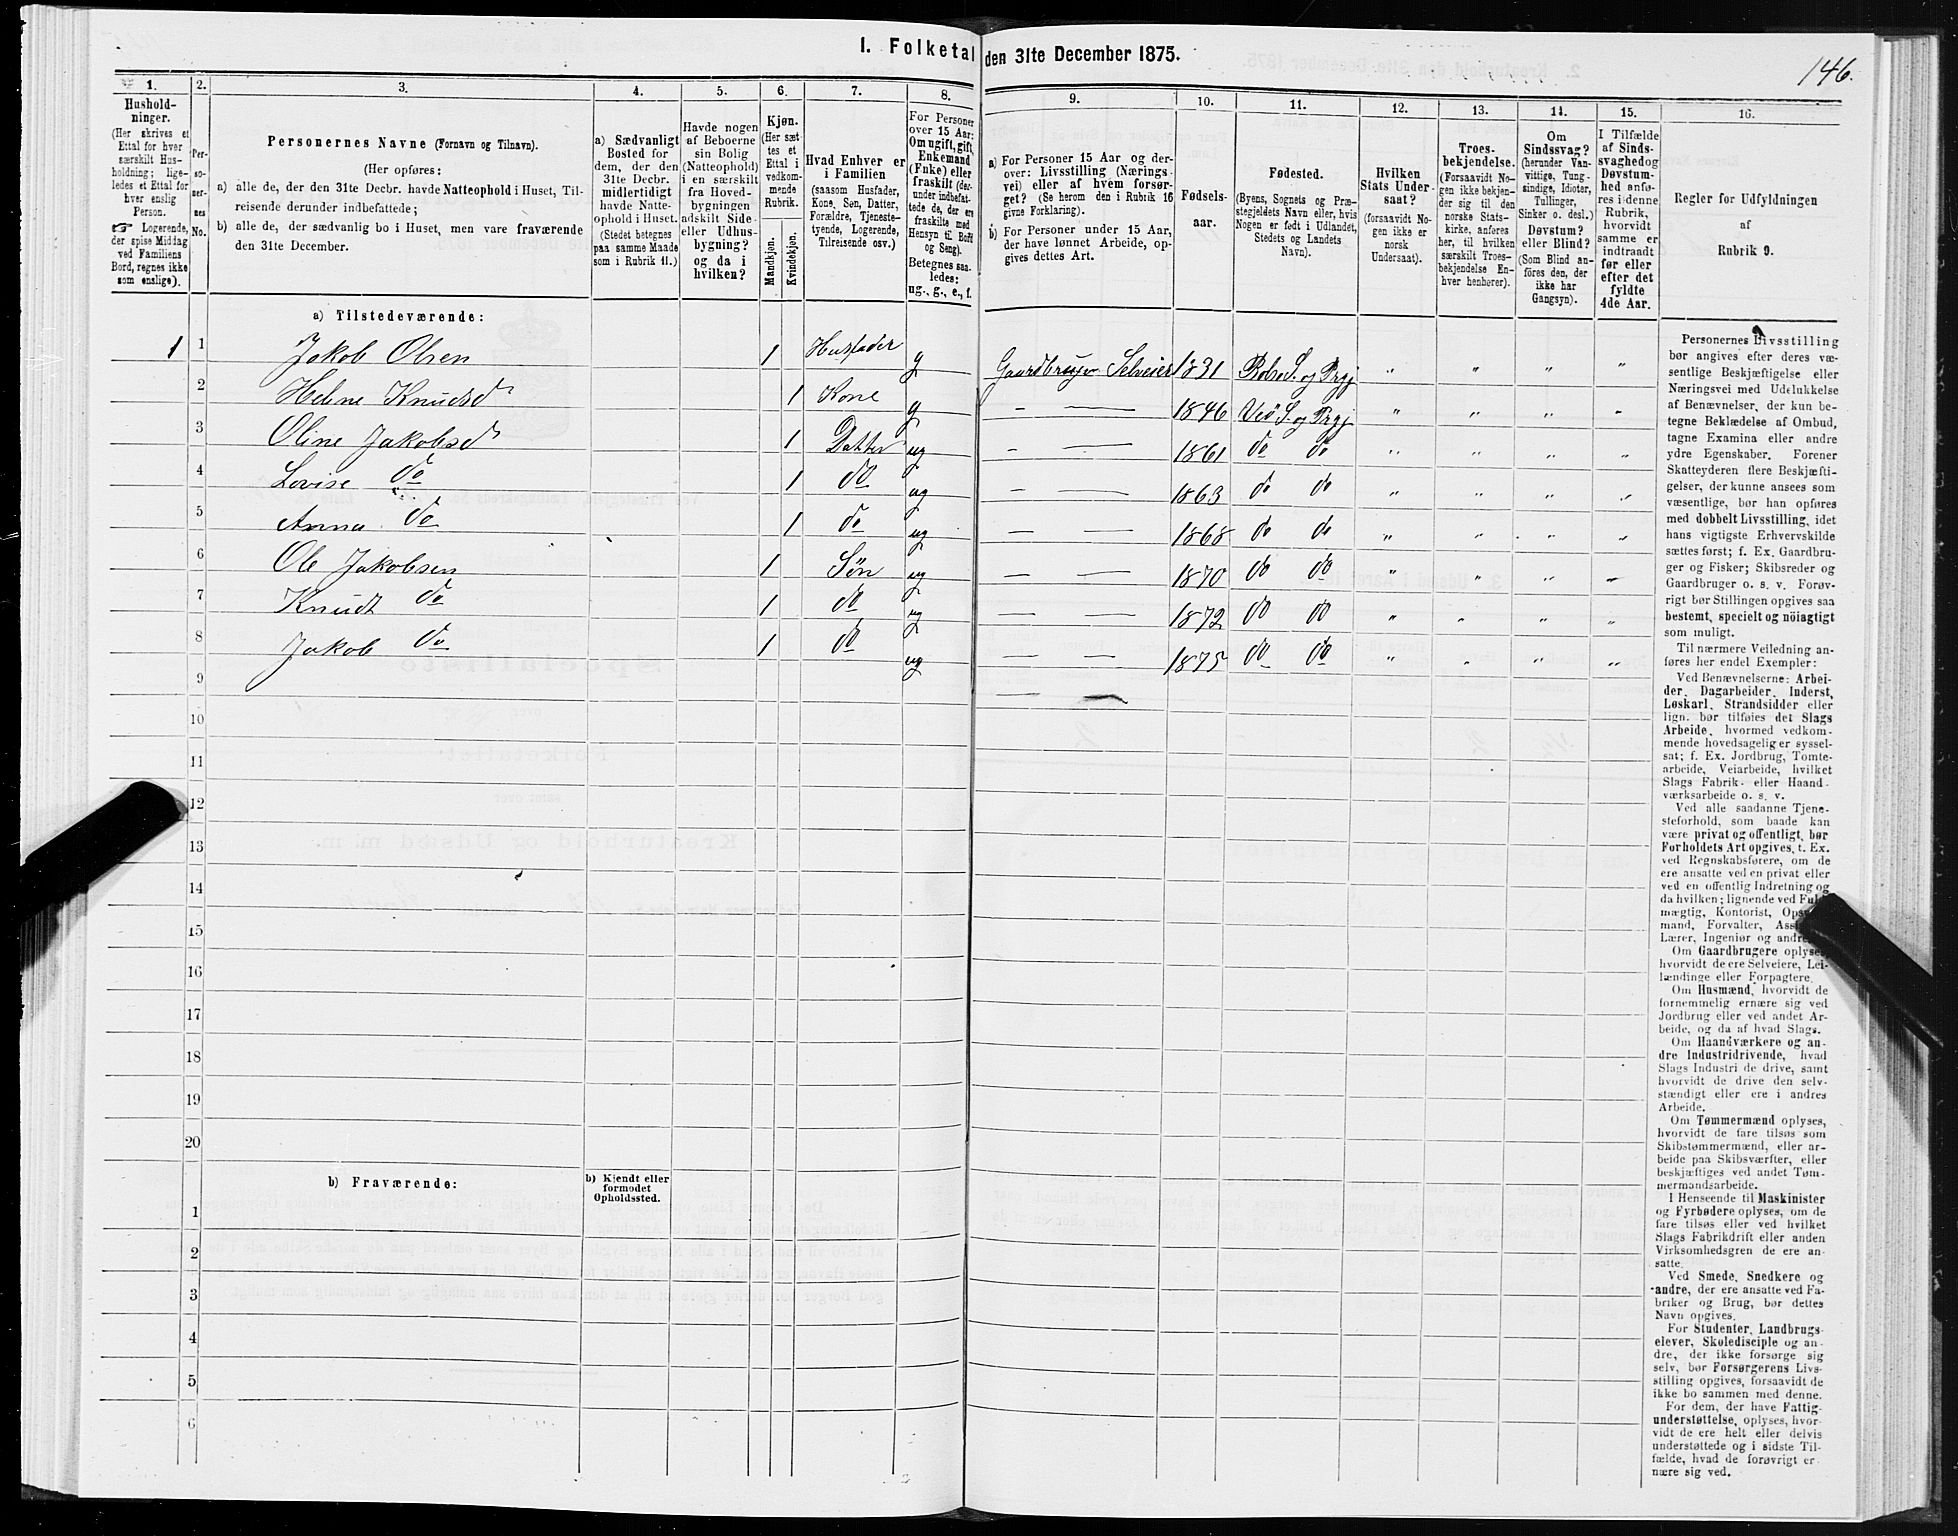 I. Folketal den 31te December 1875.
146.
1.
Hushold-
ninger.
(Her skrives et
Ettal for hver
særskilt Hus-
holdning; lige-
ledes et Ettal for
hver enslig
Person.
☞ Logerende,
der spise Middag
ved Familiens
Bord, regnes ikke
som enslige).
2.
Per-
so-
ner-
nes
No.
3.
Personernes Navne (Fornavn og Tilnavn).
(Her opføres:
a) alle de, der den 31te Decbr. havde Natteophold i Huset, Til-
reisende derunder indbefattede;
b) alle de, der sædvanlig bo i Huset, men vare fraværende
den 31te December.
4.
a) Sædvanligt
Bosted for
dem, der den
31te Decbr.
midlertidigt
havde Natte-
ophold i Huset.
(Stedet betegnes
paa samme Maade
som i Rubrik 11.)
5.
Havde nogen
af Beboerne
sin Bolig
(Natteophold)
i en særskilt
fra Hoved-
bygningen
adskilt Side-
eller Udhus-
bygning?
og da i
hvilken?
6.
Kjøn.
(Her sæt-
tes et
Ettal i
vedkom-
mende
Rubrik.
Mandkjøn.
Kvindekjøn.
7.
Hvad Enhver er
i Familien
(saasom Husfader,
Kone, Søn, Datter,
Forældre, Tjeneste-
tyende, Logerende,
Tilreisende osv.)
8.
For Personer
over 15 Aar:
Om ugift, gift,
Enkemand
(Enke) eller
fraskilt (der-
under indbefat-
tede de, der ere
fraskilte med
Hensyn til Bord
og Seng).
Betegnes saa-
ledes:
ug., g., e., f.
9.
a) For Personer 15 Aar og der-
over: Livsstilling (Nærings-
vei) eller af hvem forsør-
get? (Se herom den i Rubrik 16
givne Forklaring).
b) For Personer under 15 Aar,
der have lønnet Arbeide, op-
gives dettes Art.
10.
Fødsels-
aar.
11.
Fødested.
(Byens, Sognets og Præ-
stegjeldets Navn eller, hvis
Nogen er født i Udlandet,
Stedets og Landets
Navn).
12.
Hvilken
Stats Under-
saat?
(forsaavidt No-
gen ikke er
norsk
Undersaat).
13.
Troes-
bekjendelse.
(Forsaavidt No-
gen ikke bekjen-
der sig til den
norske Stats-
kirke, anføres
her, til hvilken
særskilt Troes-
bekjendelse En-
hver henhører).
14.
Om
Sindssvag?
(herunder Van-
vittige, Tung-
sindige, Idioter,
Tullinger,
Sinker o. desl.)
Døvstum?
eller Blind?
(Som Blind an-
føres den, der
ikke har
Gangsyn).
15.
I Tilfælde
af Sinds-
svaghed og
Døvstum-
hed anfø-
res i denne
Rubrik,
hvorvidt
samme er
indtraadt
før eller
efter det
fyldte
4de Aar.
16.
Regler for Udfyldningen
af
Rubrik 9.
a) Tilstedeværende:
1 1 Jakob Olsen 1 Husfader g Gaardbruger Selveier 1831 Bolsø S. og Prgj " " " "
2 Helene Knudsd 1 Kone g — — 1846 Veö S og Prgj " " " "
3 Oline Jakobsd 1 Datter ug — — 1861 do do " " " "
4 Lovise do 1 do ug — — 1863 do do " " " "
5 Anna do 1 do ug — — 1868 do do " " " "
6 Ole Jakobsen 1 Søn ug — — 1870 do do " " " "
7 Knudt do 1 do ug — — 1872 do do " " " "
8 Jakob do 1 do ug — — 1875 do do " " " "
9 — —
10
11
12
13
14
15
16
17
18
19
20
b) Fraværende:
b) Kjendt eller
formodet
Opholdssted.
1
2
3
4
5
6
Personernes Livsstilling
bør angives efter deres væ-
sentlige Beskjæftigelse eller
Næringsvei med Udelukkelse
af Benævnelser, der kun be-
tegne Beklædelse af Ombud,
tagne Examina eller andre
ydre Egenskaber. Forener
Skatteyderen flere Beskjæfti-
gelser, der kunne ansees som
væsentlige, bør han opføres
med dobbelt Livsstilling, idet
hans vigtigste Erhvervskilde
sættes først; f. Ex. Gaardbru-
ger og Fisker; Skibsreder og
Gaardbruger o. s. v. Forøv-
rigt bør Stillingen opgives saa
bestemt, specielt og nöiagtigt
som muligt.
Til nærmere Veiledning an-
føres her endel Exempler:
Ved Benævnelserne: Arbei-
der, Dagarbeider, Inderst,
Løskarl, Strandsidder eller
lign. bør tilføies det Slags
Arbeide, hvormed vedkom-
mende hovedsagelig er syssel-
sat; f. Ex. Jordbrug, Tomte-
arbeide, Veiarbeide, hvilket
Slags Fabrik- eller Haand-
værksarbeide o. s. v.
Ved alle saadanne Tjene-
steforhold, som baade kan
være privat og offentligt, bør
Forholdets Art opgives, t. Ex.
ved Regnskabsførere, om de
ere ansatte ved en privat eller
ved en offentlig Indretning og
da hvilken; lignende ved Fuld-
mægtig, Kontorist, Opsyns-
mand, Forvalter, Assistent,
Lærer, Ingeniør og andre.
Om Gaardbrugere oplyses,
hvorvidt de ere Selveiere, Lei-
lændinge eller Forpagtere.
Om Husmænd, hvorvidt de
fornemmelig ernære sig ved
Jordbrug eller ved andet Ar-
beide, og da af hvad Slags.
Om Haandværkere og an-
dre Industridrivende, hvad
Slags Industri de drive, samt
hvorvidt de drive den selv-
stændigt eller ere i andres
Arbeide.
Om Tømmermænd oplyses,
hvorvidt de fare tilsøs som
Skibstømmermænd, eller ar-
beide paa Skibsværfter, eller
beskjæftiges ved andet Tøm-
mermandsarbeide.
I Henseende til Maskinister
og Fyrbødere oplyses, om de
fare tilsøs eller ved hvilket
Slags Fabrikdrift eller anden
Virksomhedsgren de ere an-
satte.
Ved Smede, Snedkere og
andre, der ere ansatte ved Fa-
briker og Brug, bør dettes
Navn opgives.
For Studenter, Landbrugs-
elever, Skoledisciple og an-
dre, der ikke forsørge sig
selv, bør Forsørgerens Livs-
stilling opgives, forsaavidt de
ikke bo sammen med denne.
For dem, der have Fattig-
understøttelse, oplyses, hvor-
vidt de ere helt eller delvis
understøttede og i sidste Til-
fælde, hvad de forøvrigt er-
nære sig ved.